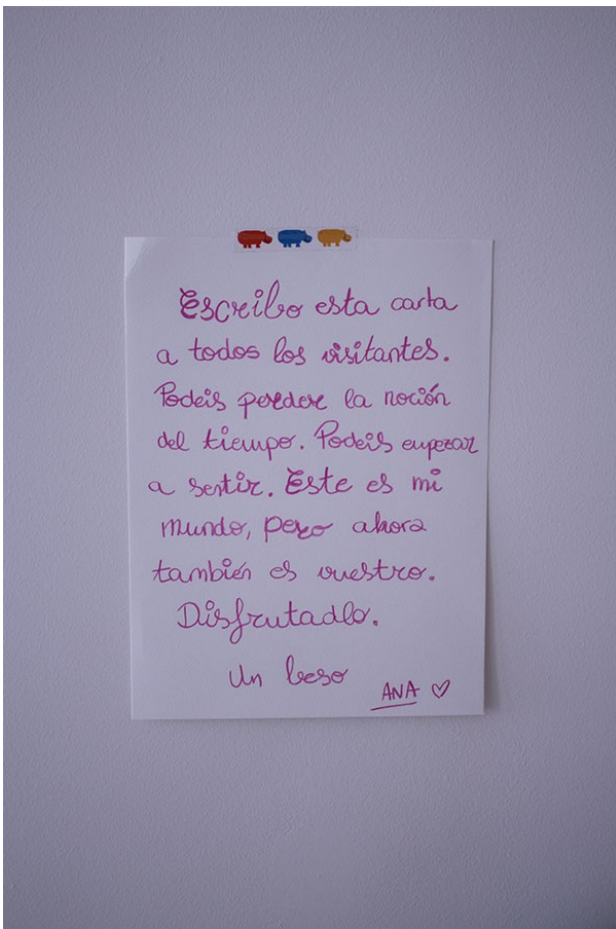 Escribo esta carta
a todos los visitantes.
Podeis perder la noción
del tiempo. Podeis empezar
a sentir. Este es mi
mundo, pero ahora
también es vuestro.
Disfrutadlo.
Un beso
ANA ♡